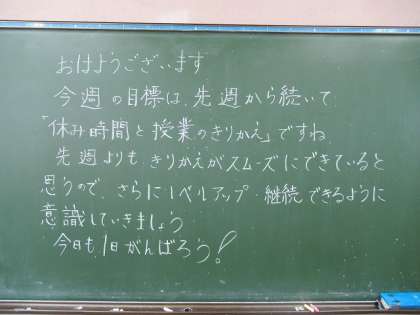 おはようございます
今週の目標は、先週から続いて
「休み時間と授業のきりかえ」ですね
先週よりも、きりかえがスムーズにできていると
思うので、さらにレベルアップ・継続できるように
意識していきましょう
今日も1日がんばろう!